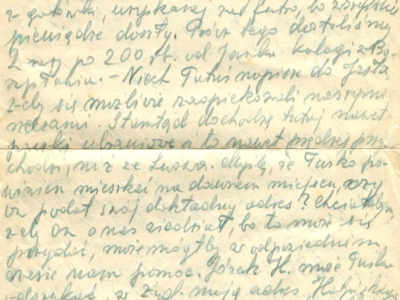 z gotówki, uzyskanej za futro, bo wszystkie
pieniądze doszły. Prócz tego dostaliśmy
2 razy po 200 rb. od Janka kolegi z
. – Niech Tatuś napisze do Jasła
żeby się możliwie zaopiekowali naszymi
rzeczami. Stamtąd dochodzą tutaj nawet
paczki ubraniowe i to nawet prędzej
niż ze Lwowa. Myślę, że Tusko po-
winien mieszkać na dawnem miejscu, czy
on podał swój dokładny adres? Chciałbym,
żeby on o nas wiedział, bo to może się
przydać, może mógłby w odpowiednim
czasie nam pomóc. H. może
w mają adres